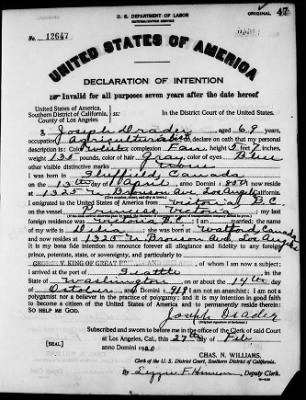 U. S. DEPARTMENT OF LABOR
NATURALIZATION SERVICE
ORIGINAL 47
No. 12647
UNITED STATES OF AMERICA
DECLARATION OF INTENTION
Invalid for all purposes seven years after the date hereof
United States of America,
Southern District of California, ss:
County of Los Angeles
In the District Court
of the United States.
I, Joseph Deader, aged 69 years,
occupation Agriculturalist, do declare on oath that my personal
description is: Color White, complexion Fair, height 5 feet 7 inches,
weight 135 pounds, color of hair Gray, color of eyes Blue
other visible distinctive marks
I was born in Sheffield, Canada
on the 15th day of April, anno Domini 18; I now reside
at 1325 N. Bronson Ave Los Angeles
I emigrated to the United States of America from Victoria, B.C.
on the vessel Princess Victoria; my last
foreign residence was; I am married; the name
of my wife is Delia; she was born at Watford Canada
and now resides at 1325 N. Bronson Ave, Los Angeles
It is my bona fide intention to renounce forever all allegiance and fidelity to any foreign
prince, potentate, state, or sovereignty, and particularly to
GEORGE V, KING OF GREAT, of whom I am now a subject;
I arrived at the port of Seattle, in the
State of Washington, on or about the 14th day
of October, anno Domini 1918; I am not an anarchist; I am not a
polygamist nor a believer in the practice of polygamy; and it is my intention in good faith
to become a citizen of the United States of America and to permanently reside therein:
SO HELP ME GOD.
Joseph Deader
Subscribed and sworn to before me in the office of the Clerk of said Court
at Los Angeles, Cal., this 27th day of Feb
anno Domini 1920
[SEAL]
CHAS. N. WILLIAMS,
Clerk of the U. S. District Court, Southern District of California.
By, Deputy Clerk.